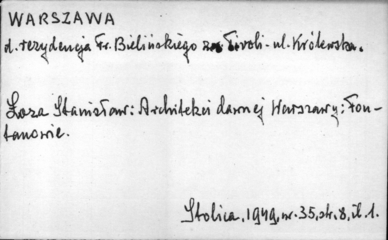 WARSZAWA
d. rezydencja Fr. Bielińskiego Tivoli - ul. Królewska.
Łoza Stanisław: Architekci dawnej Warszawy: Fon-
tanowie.
Stolica, 1949, nr. 35, str. 8, il. 1.